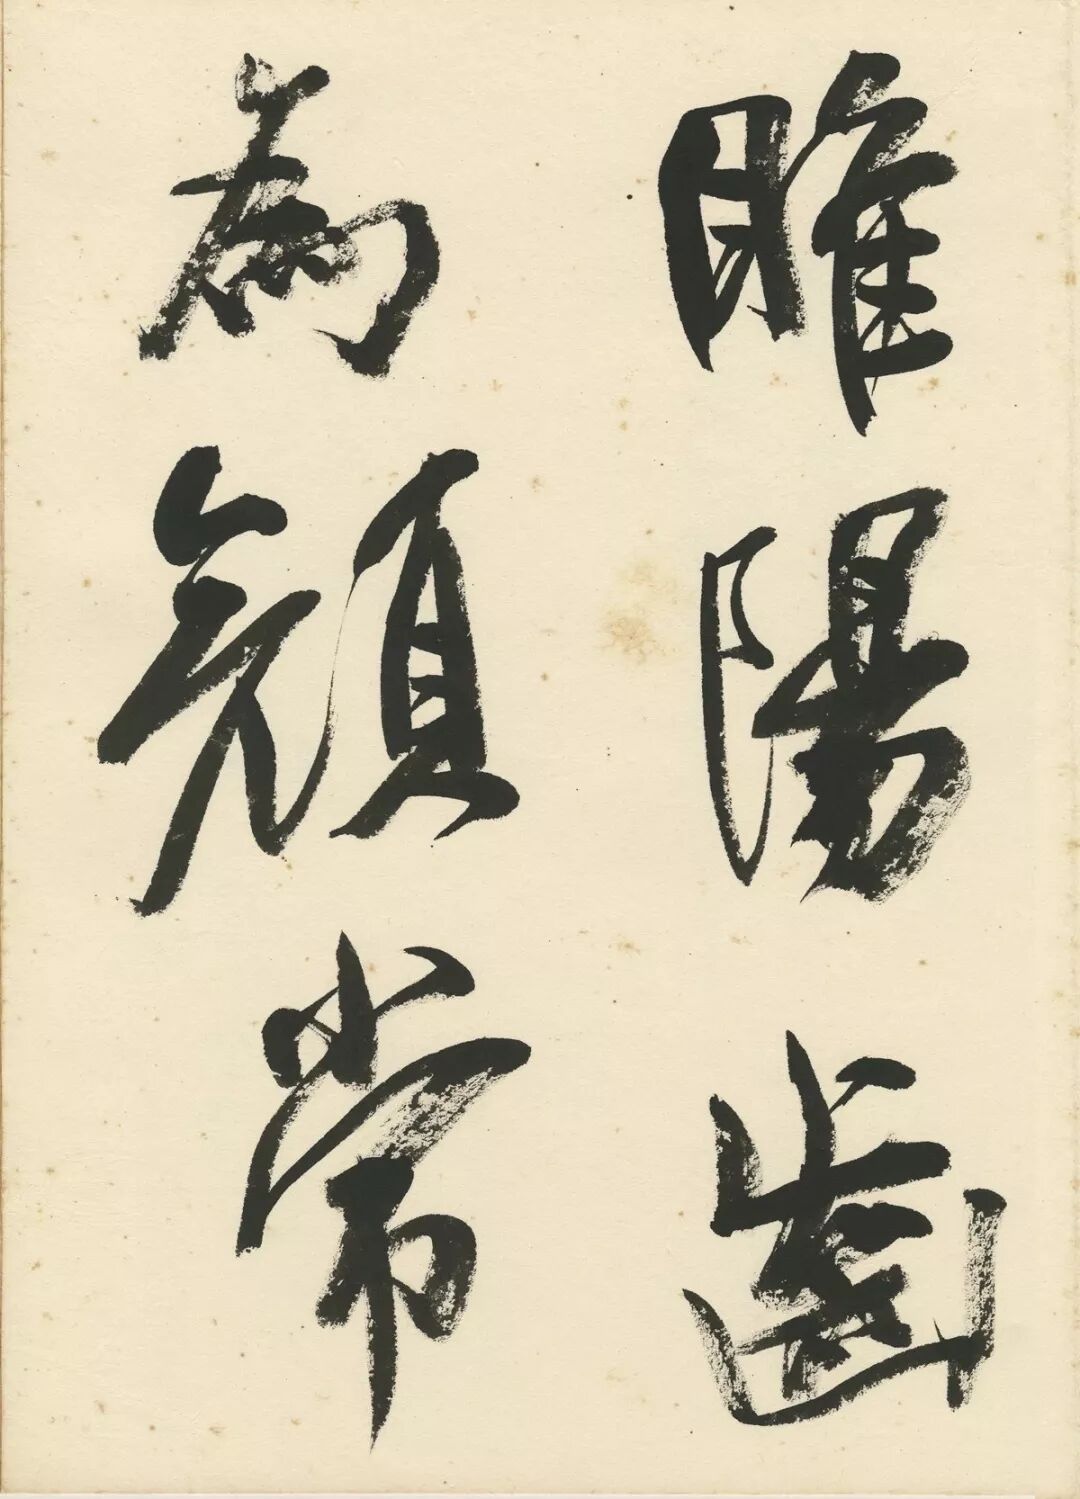 睢陽齒
為顏常